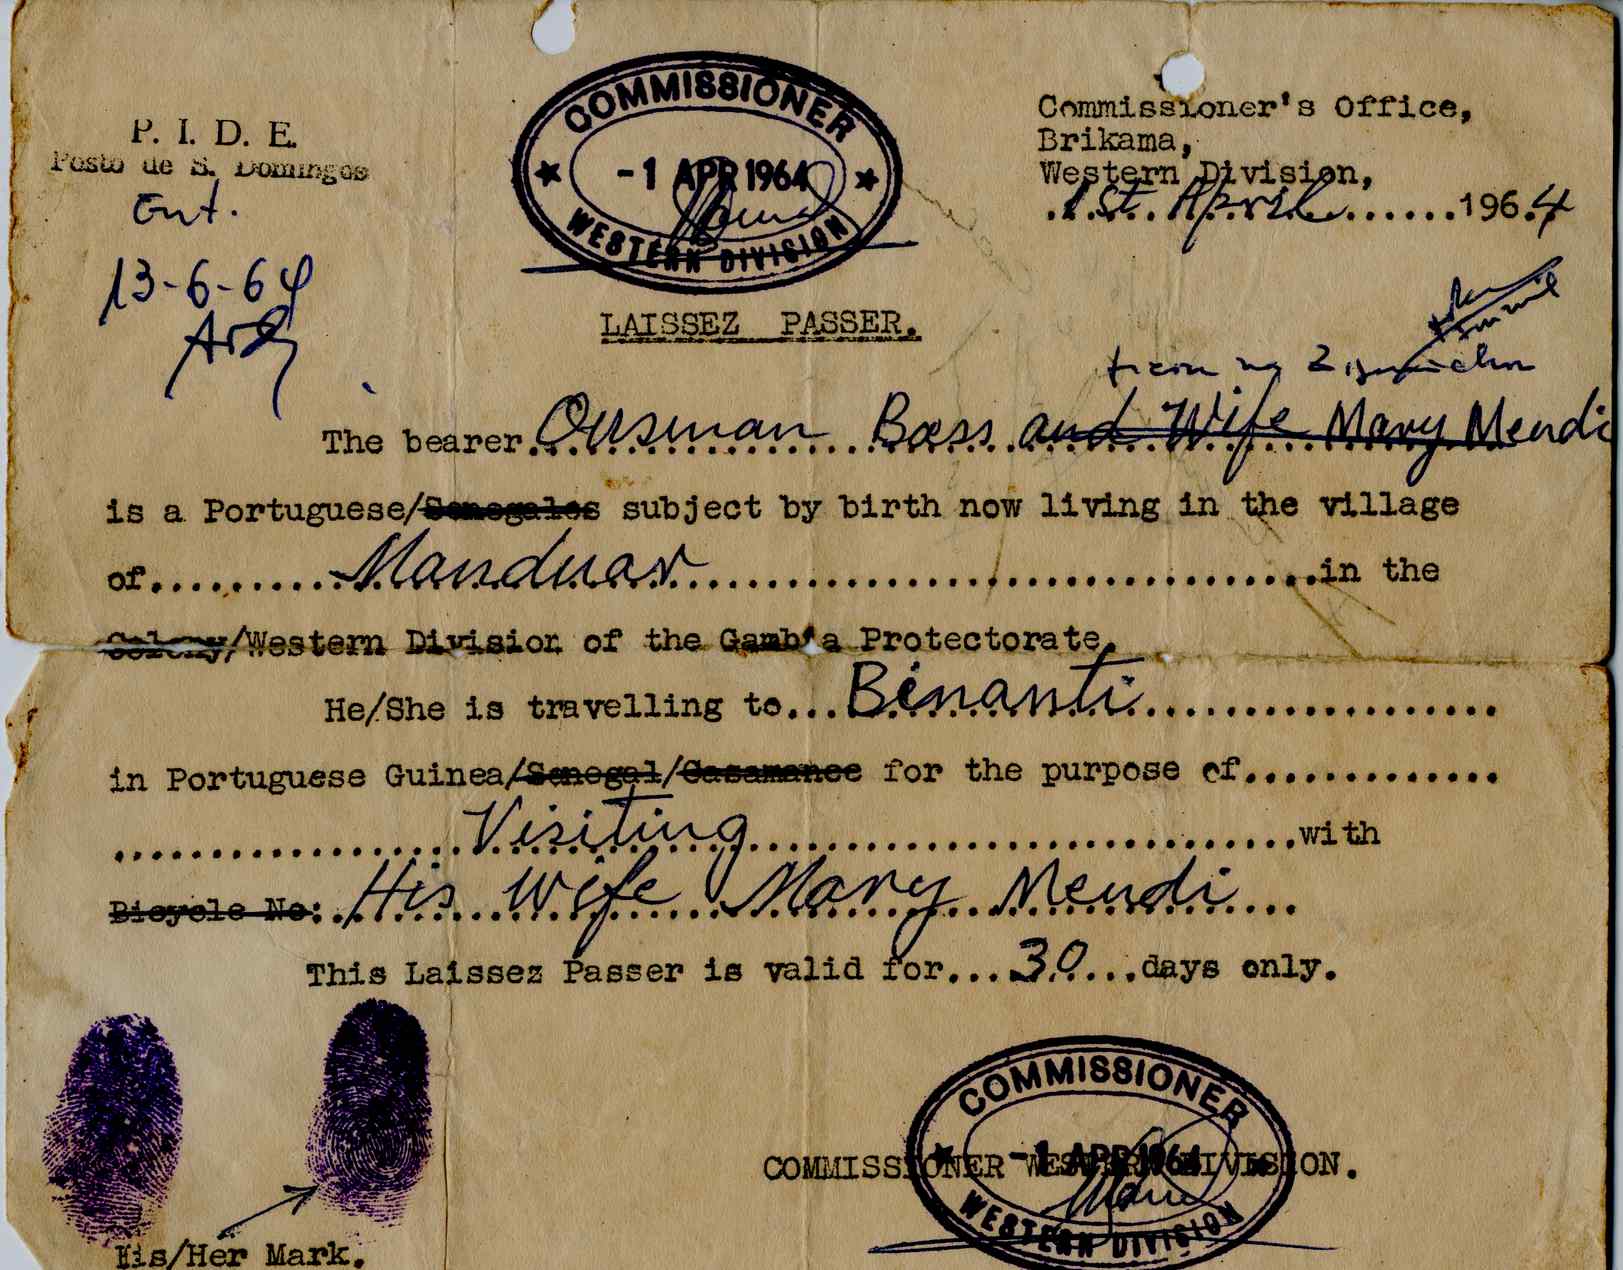 P. I. D. E.
Posto de S. Domingos
Ent.
13-6-64
COMMISSIONER
-1 APR 1964
WESTERN DIVISION
Commissioner's Office,
Brikama,
Western Division,
1st April 1964
LAISSEZ PASSER.
The bearer Ousman Bass and Wife Mary Mendi
is a Portuguese/Senegales subject by birth now living in the village
of Manduar in the
Colony/Western Division of the Gambia Protectorate.
He/She is travelling to Binanti
in Portuguese Guinea/Senegal/Casamance for the purpose of
Visiting with
Bicycle No: His Wife Mary Mendi
This Laissez Passer is valid for 30 days only.
COMMISSIONER WESTERN DIVISION.
COMMISSIONER
-1 APR 1964
WESTERN DIVISION
His/Her Mark.